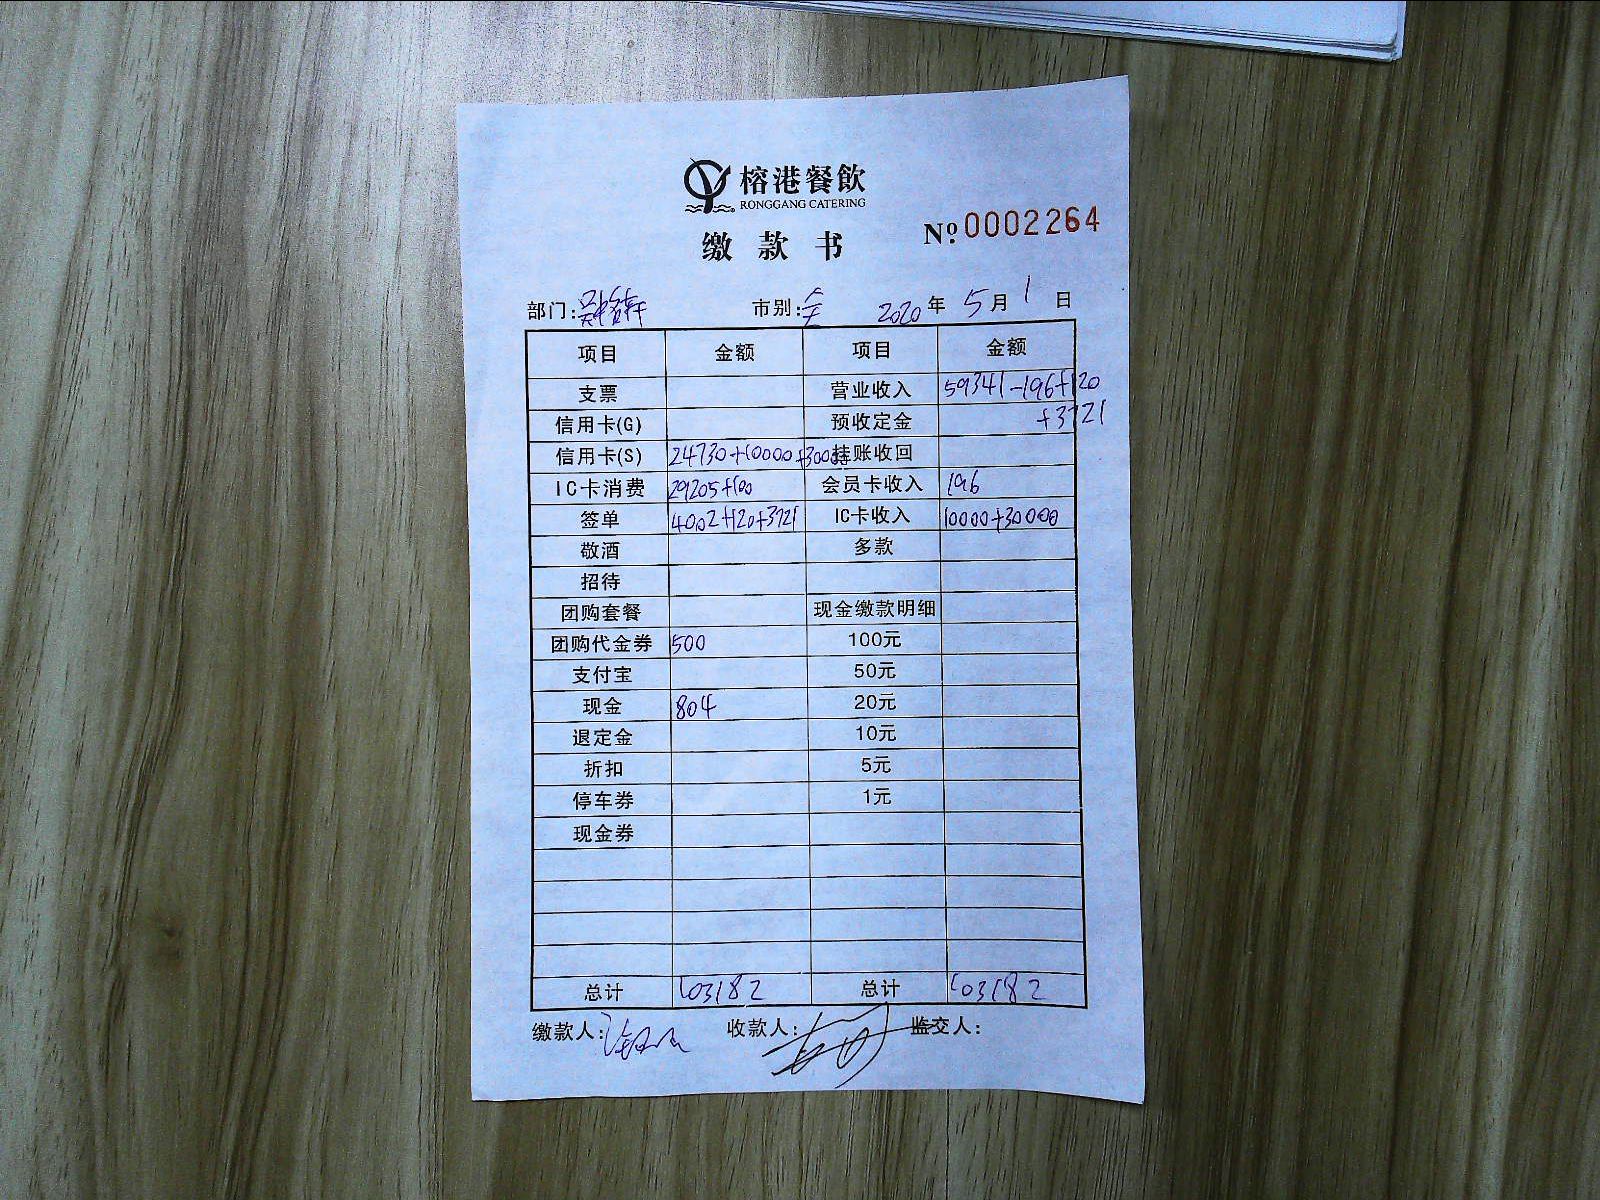 榕港餐飲
RONGGANG CATERING
缴款书
№ 0002264
部门: 市别:全 2020年5月1日
项目 金额 项目 金额
支票 营业收入 59341-196+120
信用卡(G) 预收定金 +3721
信用卡(S) 24730+10000+30000 挂账收回
IC卡消费 29205+100 会员卡收入 196
签单 4002+120+3721 IC卡收入 10000+30000
敬酒 多款
招待
团购套餐 现金缴款明细
团购代金券 500 100元
支付宝 50元
现金 804 20元
退定金 10元
折扣 5元
停车券 1元
现金券
总计 103182 总计 103182
缴款人: 收款人: 监交人: